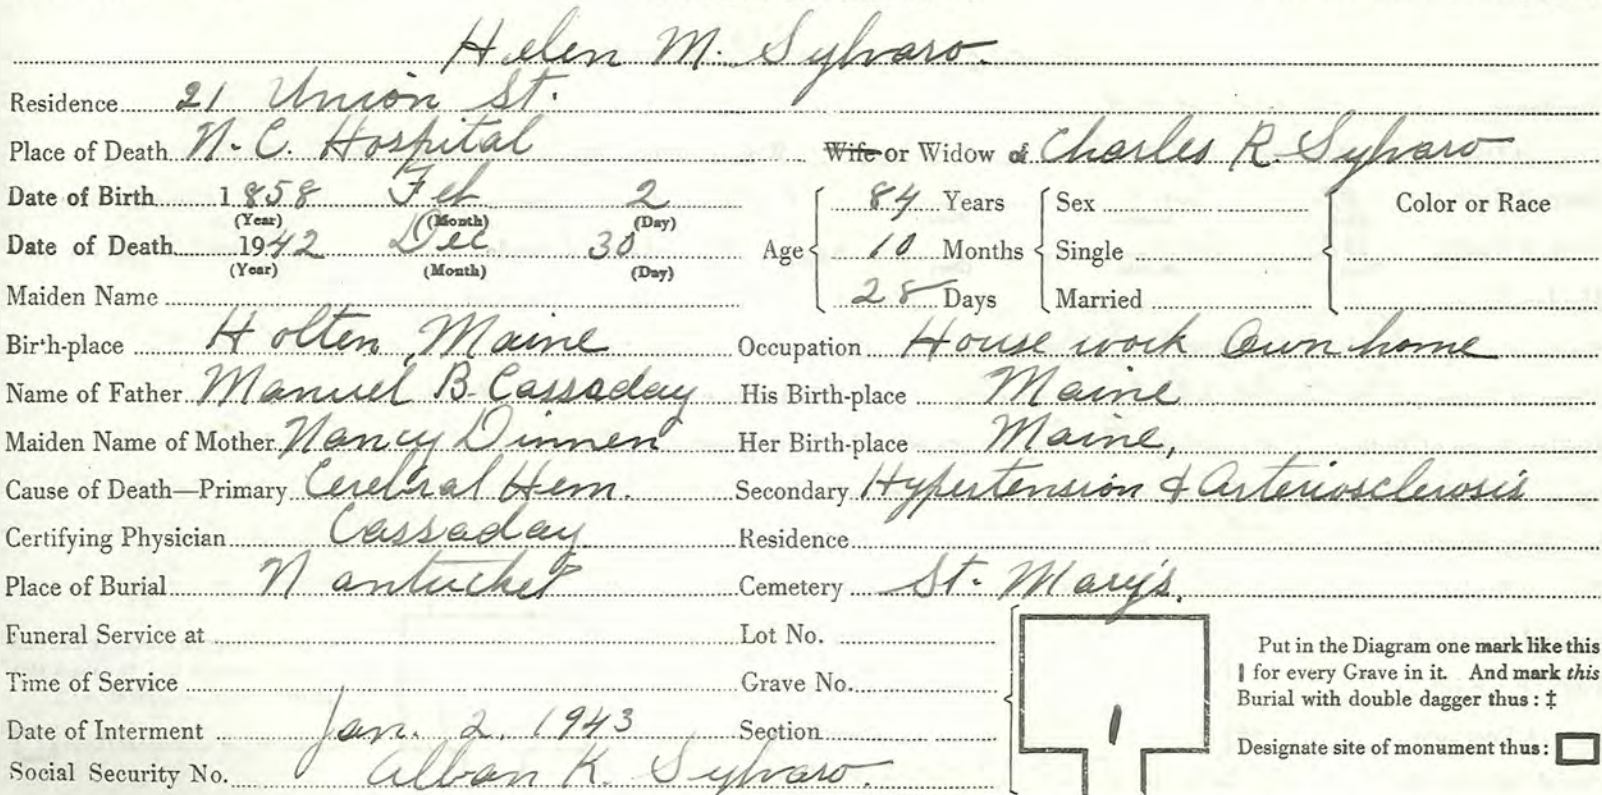 Helen M. Sylvaro.
Residence 21 Union St.
Place of Death N. C. Hospital Wife or Widow of Charles R. Sylvaro
Date of Birth 1858 Feb 2 84 Years Sex Color or Race
(Year) (Month) (Day)
Date of Death 1942 Dec 30 Age 10 Months Single
(Year) (Month) (Day)
Maiden Name 28 Days Married
Birth-place Holten, Maine Occupation House work Own home
Name of Father Manuel B. Cassaday His Birth-place Maine
Maiden Name of Mother Nancy Dinnen Her Birth-place Maine,
Cause of Death—Primary Cerebral Hem. Secondary Hypertension & Arteriosclerosis
Certifying Physician Cassaday Residence
Place of Burial Nantucket Cemetery St. Mary's.
Funeral Service at Lot No.
Time of Service Grave No.
Date of Interment Jan. 2, 1943 Section
Social Security No. Alban K. Sylvaro.
Put in the Diagram one mark like this
| for every Grave in it. And mark this
Burial with double dagger thus : ‡
Designate site of monument thus :